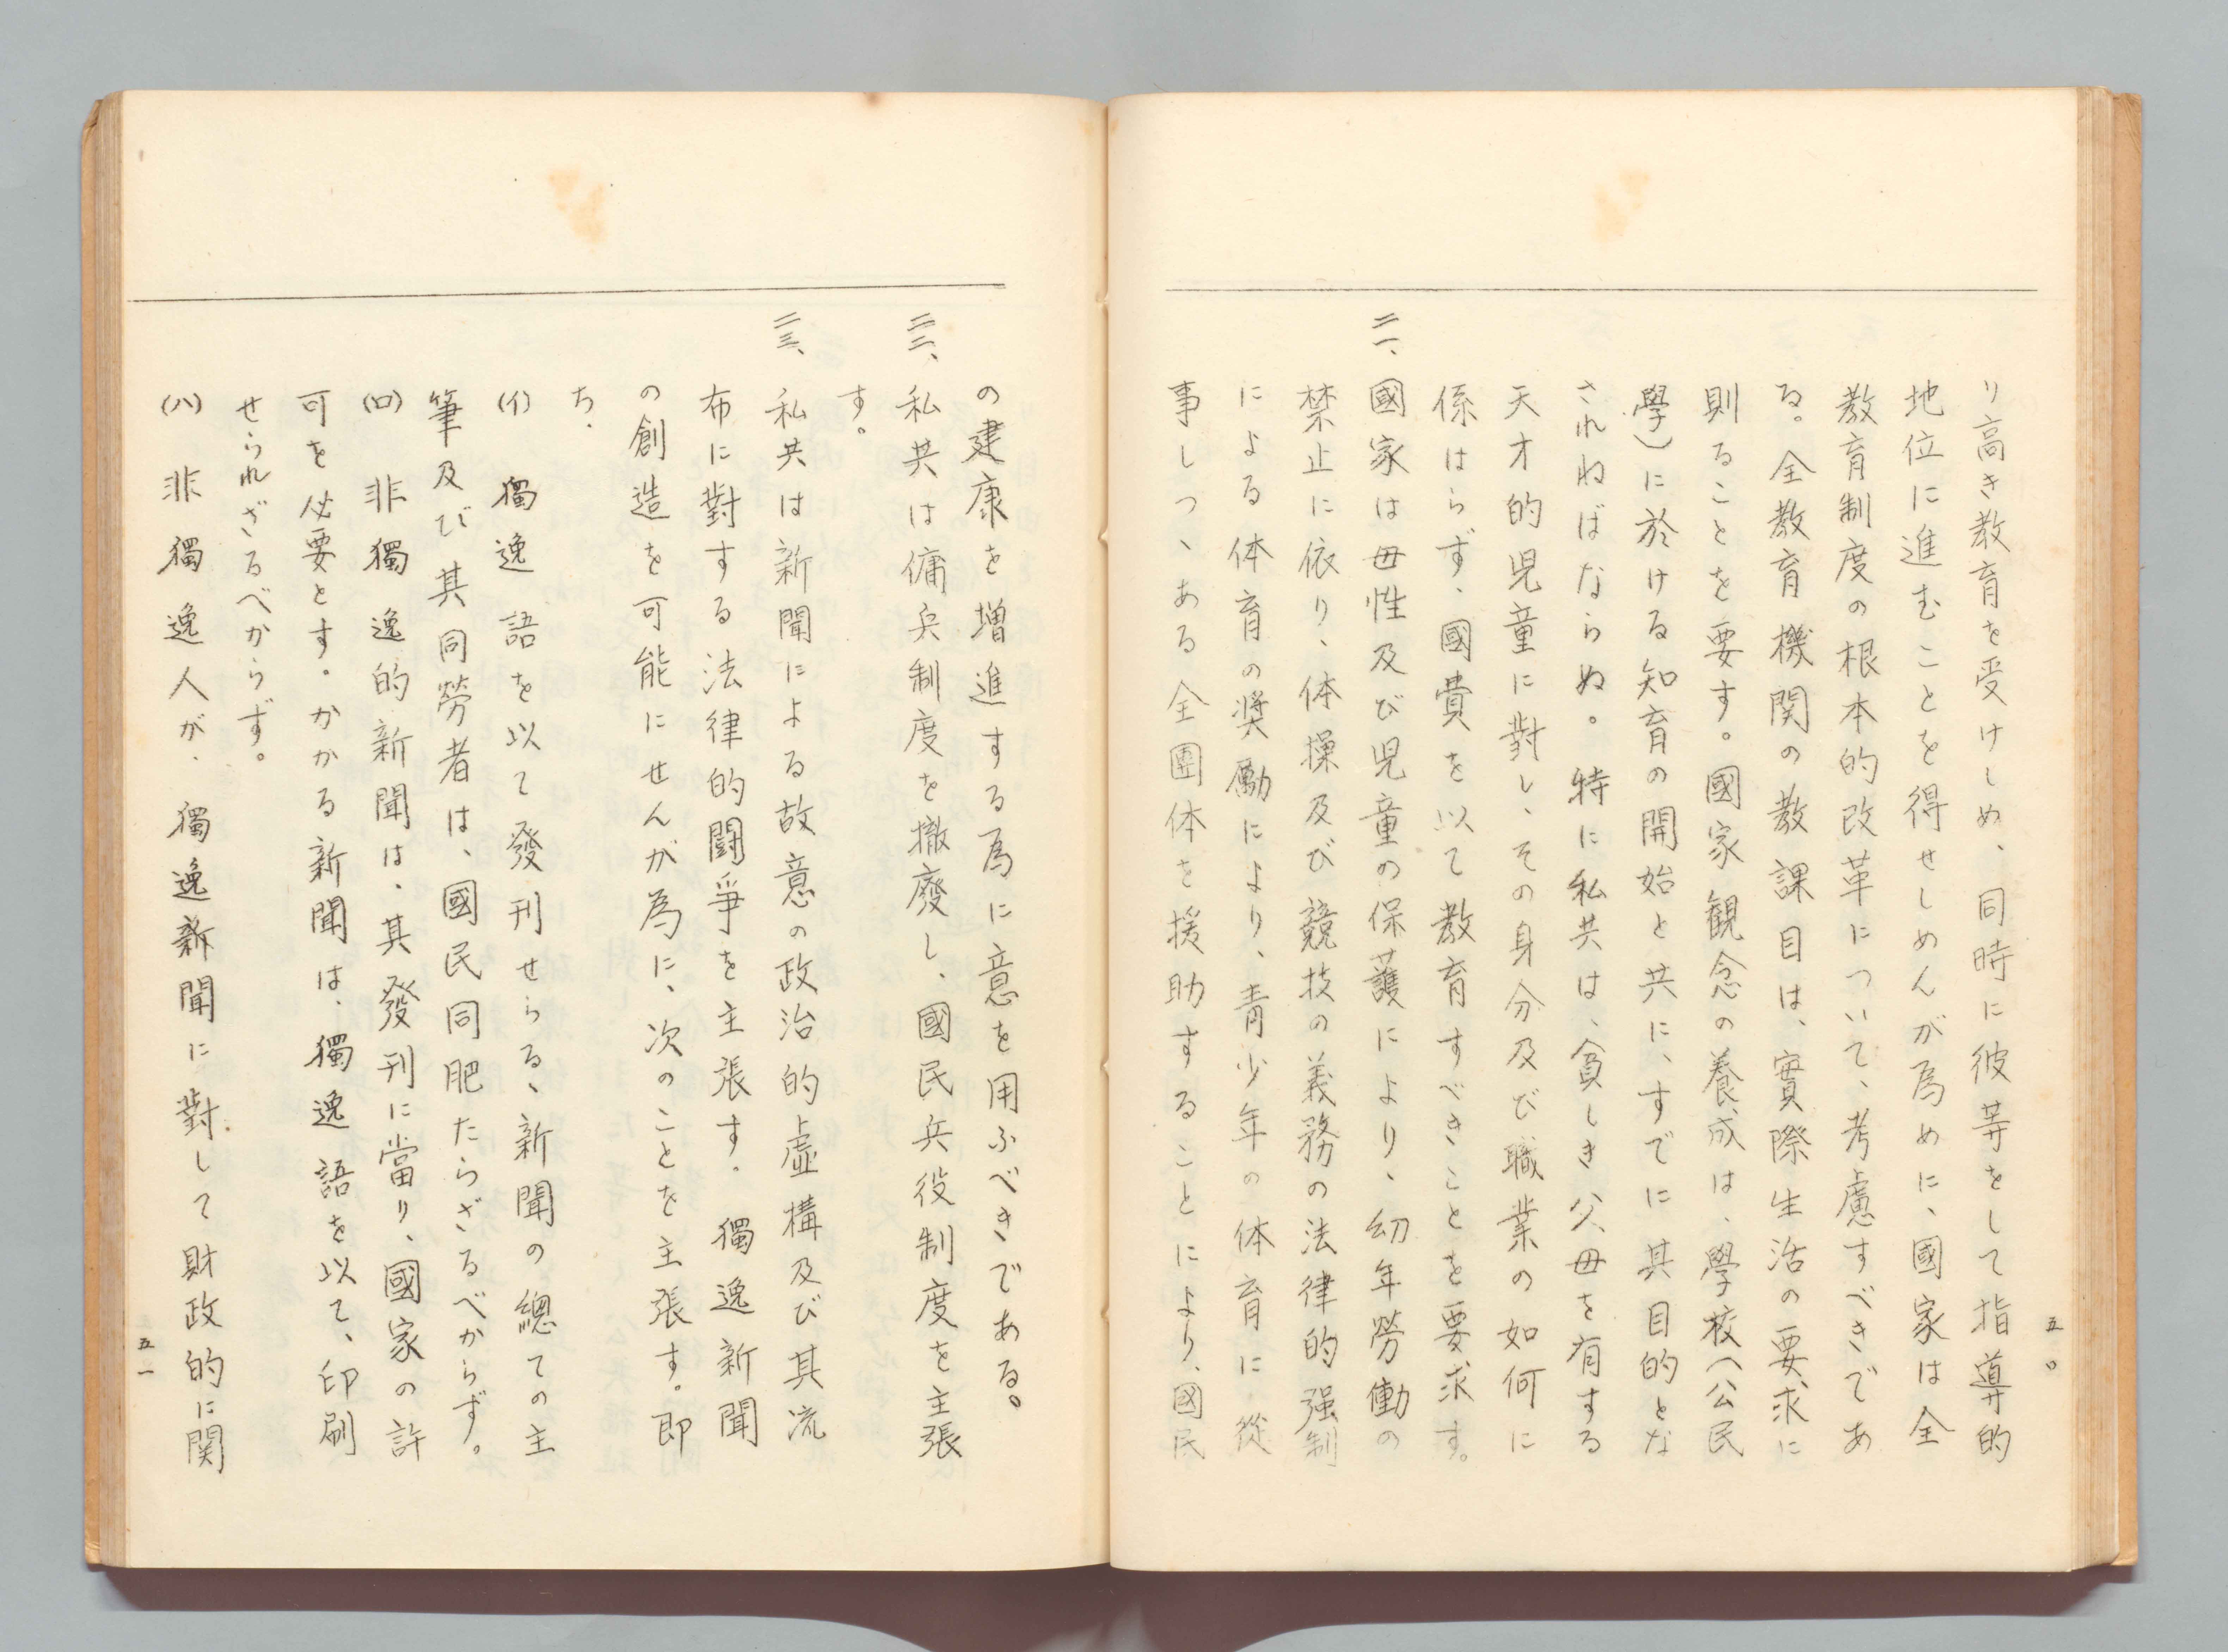 り高き教育を受けしめ、同時に彼等をして指導的
地位に進むことを得せしめんが為めに、國家は全
教育制度の根本的改革について、考慮すべきであ
る。全教育機関の教課目は、實際生活の要求に
則ることを要す。國家観念の養成は、學校(公民
學)に於ける知育の開始と共に、すでに其目的とな
されねばならぬ。特に私共は、貧しき父母を有する
天才的児童に對し、その身分及び職業の如何に
係はらず、國費を以て教育すべきことを要求す。
二一、國家は母性及び児童の保護により、幼年勞働の
禁止に依り、体操及び競技の義務の法律的强制
による体育の奨勵により、青少年の体育に從
事しつヽある全團体を援助することにより、國民
五〇
の建康を増進する為に意を用ふべきである。
二二、私共は傭兵制度を撤廢し、國民兵役制度を主張
す。
二三、私共は新聞による故意の政治的虚構及び其流
布に對する法律的闘爭を主張す。獨逸新聞
の創造を可能にせんが為に、次のことを主張す。即
ち、
(イ) 獨逸語を以て發刊せらるヽ新聞の總ての主
筆及び其同勞者は、國民同肥たらざるべからず。
(ロ) 非獨逸的新聞は、其發刊に當り、國家の許
可を必要とす。かかる新聞は、獨逸語を以て、印刷
せられざるべからず。
(ハ) 非獨逸人が、獨逸新聞に對して財政的に関
五一